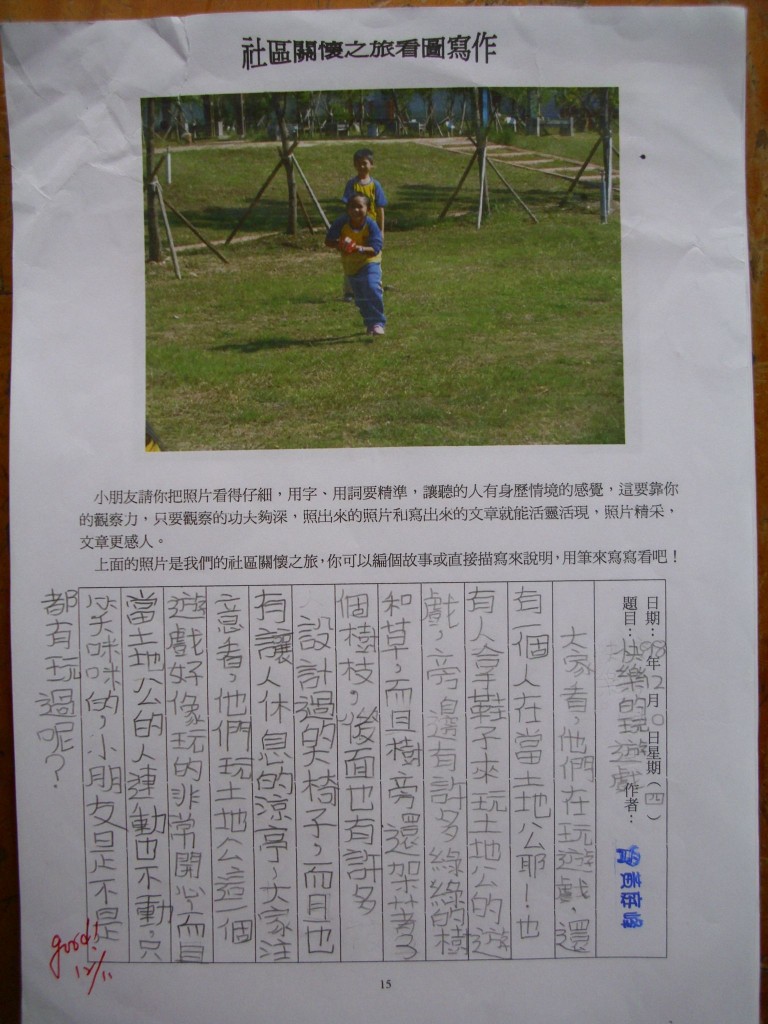 社區關懷之旅看圖寫作
小朋友請你把照片看得仔細，用字、用詞要精準，讓聽的人有身歷情境的感覺，這要靠你
的觀察力，只要觀察的功夫夠深，照出來的照片和寫出來的文章就能活靈活現，照片精采，
文章更感人。
上面的照片是我們的社區關懷之旅，你可以編個故事或直接描寫來說明，用筆來寫寫看吧！
日期：98年12月10日星期（四）
題目：快樂的玩遊戲 作者：
大家看，他們在玩遊戲，還
有一個人在當土地公耶！也
有人拿鞋子來玩土地公的遊
戲，旁邊有許多綠綠的樹
和草，而且樹旁還架著了
個樹枝，後面也有許多
設計過的大椅子，而且也
有讓人休息的涼亭，大家注
意看，他們玩土地公這一個
遊戲好像玩的非常開心，而且
當土地公的人連動也不動，只
笑咪咪的，小朋友是不是
都有玩過呢？
good!
12/11
15